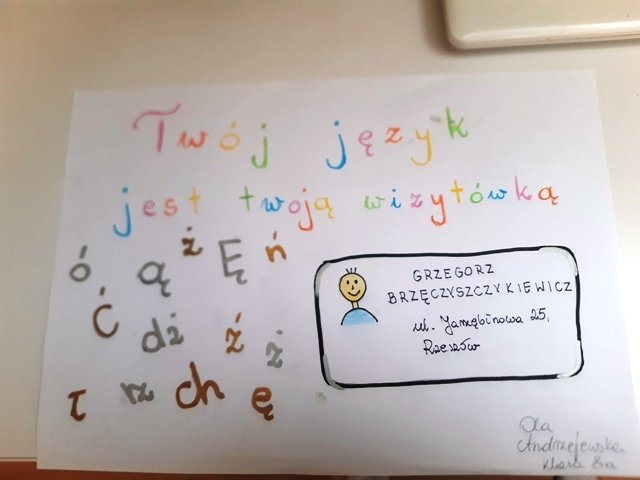 Twój język
jest twoją wizytówką
ó ą ż Ę ń
Ć dż ź ż
rz ch ę
GRZEGORZ
BRZĘCZYSZCZYKIEWICZ
ul. Jarzębinowa 25,
Rzeszów
Ola
Andrzejewska
klasa 8a